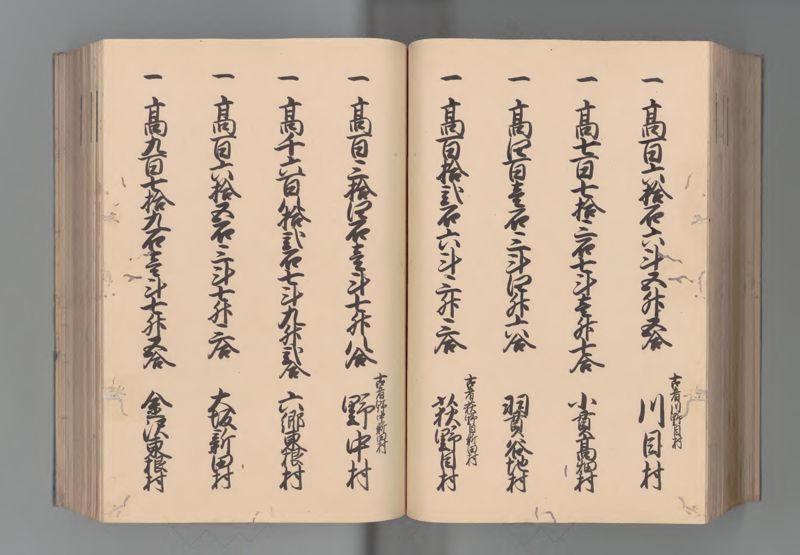 一 高百六拾石六斗五升五合
古者川野目村
川目村
一 高七百七拾三石七斗壱升七合
小貫高畑村
一 高四百壱石三斗四升六合
羽貫谷地村
一 高百拾弐石六斗三升三合
古者萩野目新田村
萩野目村
一 高百三拾四石壱斗七升八合
古者野中新田村
野中村
一 高千六百拾弐石七斗九升弐合
六郷東根村
一 高百六拾五石三斗七升三合
大坂新田村
一 高九百七拾九石壱斗七升五合
金沢東根村